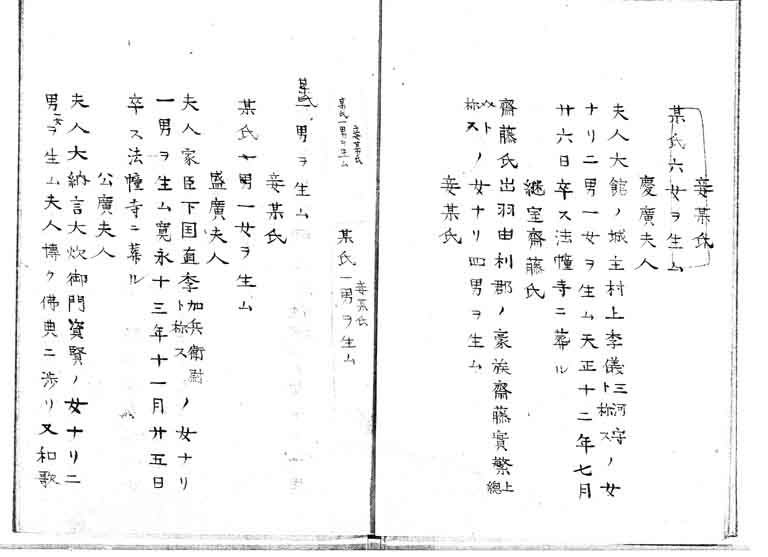 妾某氏
某氏六女ヲ生ム
慶廣夫人
夫人大館ノ城主村上季儀三河守ト称スノ女
ナリ二男一女ヲ生ム天正十二年七月
廿六日卒ス法幢寺ニ葬ル
継室齋藤氏
齋藤氏出羽由利郡ノ豪族齋藤實繁上総
介ト称スノ女ナリ四男ヲ生ム
妾某氏
妾某氏
某氏一男ヲ生ム
妾某氏
某氏一男ヲ生ム
某氏一男ヲ生ム
妾某氏
某氏七男一女ヲ生ム
盛廣夫人
夫人家臣下国直季加兵衛尉ト称スノ女ナリ
一男ヲ生ム寛永十三年十一月廿五日
卒ス法幢寺ニ葬ル
公廣夫人
夫人大納言大炊御門資賢ノ女ナリ二
男一女ヲ生ム夫人博ク佛典ニ渉リ又和歌